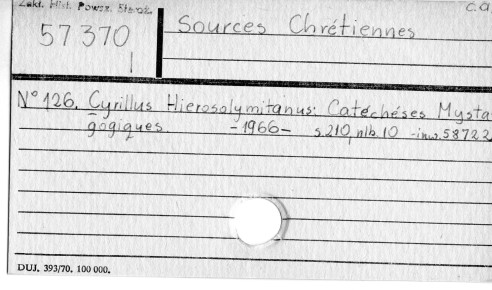 Zakł. Hist. Powsz. Staroż.
c.a
57370
1
Sources Chrétiennes
N° 126. Cyrillus Hierosolymitanus: Catéchéses Mysta
gogiques. -1966- s.210, nlb.10 -inw.58722
DUJ. 393/70. 100 000.